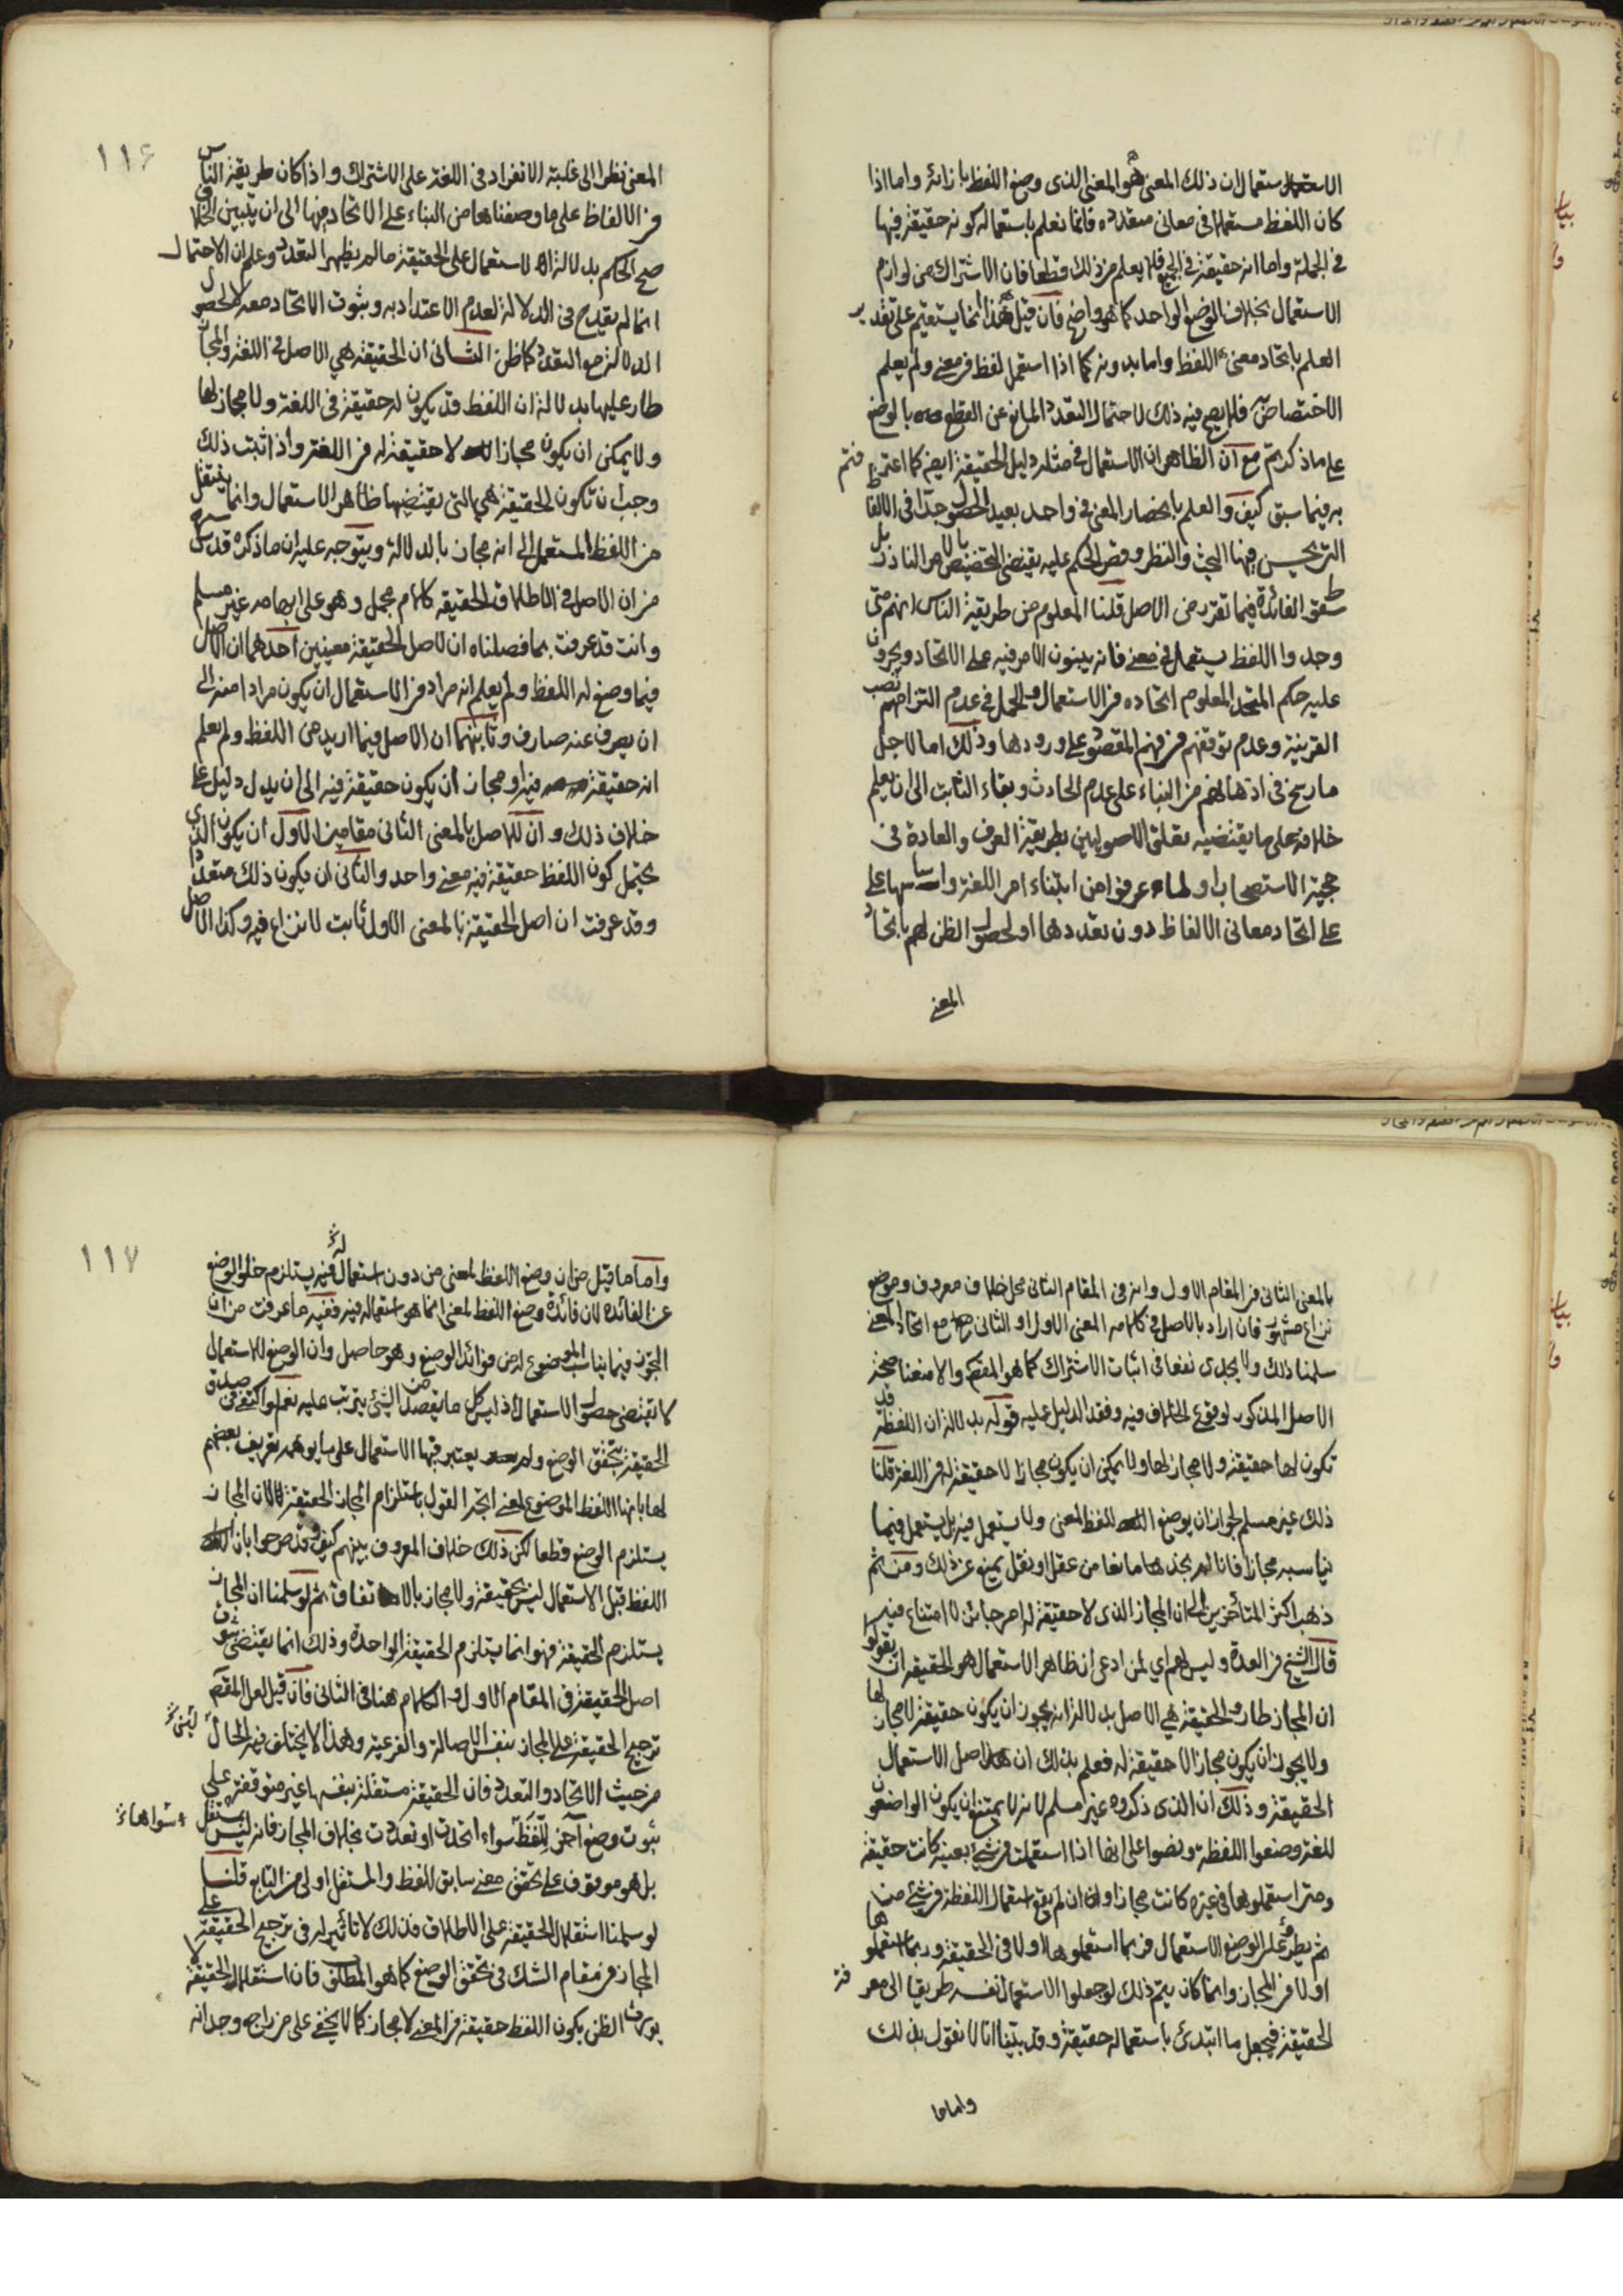 الاستعمال ان ذلك المعنى هو المعنى الذى وضع اللفظ بازائه واما اذا
كان اللفظ مستعملا فى معانى متعدده فانما نعلم باستعماله كونه حقيقة فيها
فى الجملة واما انه حقيقة فى الجميع فلا يعلم من ذلك قطعا فان الاشتراك من لوازم
الاستعمال بخلاف الوضع الواحد كما هو واضح فان قيل هذا انما يستقيم على تقدير
العلم باتحاد معنى اللفظ واما بدونه كما اذا استعمل لفظ فى معنى ولم يعلم
الاختصاص به فلا يصح فيه ذلك لاحتمال التعدد المانع عن القطع بالوضع
على ما ذكرتم مع ان الظاهر ان الاستعمال فى مثله دليل الحقيقة ايضا كما اعترفتم
به فيما سبق كيف والعلم بانحصار المعنى فى واحد بعيد الحصول جدا فى الالفاظ
التى يحسن فيها البحث والنظر وقصر الحكم عليه يقتضى التخصيص بالامر النادر بل
سقوط الفائدة فيما تقرر من الاصل قلنا المعلوم من طريقة الناس انهم متى
وجدوا اللفظ يستعمل فى معنى فانه يبنون الامر فيه على الاتحاد ويجرون
عليه حكم المتحد المعلوم اتحاده فى الاستعمال والحمل فى عدم التزامهم نصب
القرينة وعدم توقفهم فى فهم المقصود على ورودها وذلك اما لاجل
ما رسخ فى اذهانهم من البناء على عدم الحادث وبقاء الثابت الى ان يعلم
خلافه على ما يقتضيه تعلق الاصوليين بطريقة العرف والعادة فى
حجية الاستصحاب او لما عرفوا من ابتناء امر اللغة واساسها على
على اتحاد معانى الالفاظ دون تعددها او لحصول الظن لهم باتحاد
المعنى
١١٦
المعنى نظرا الى غلبة الانفراد فى اللغة على الاشتراك واذا كان طريقة الناس
فى الالفاظ على ما وصفناها من البناء على الاتحاد فيها الى ان يتبين الخلاف
صح الحكم بدلالة الاستعمال على الحقيقة ما لم يظهر التعدد وعلم ان الاحتمال
انما لم يقدح فى الدلالة لعدم الاعتداد به وثبوت الاتحاد معه لا لحصول
الدلالة مع التعدد كما ظن الثانى ان الحقيقة هى الاصل فى اللغة والمجاز
طار عليها بدلالة ان اللفظ قد يكون له حقيقة فى اللغة ولا مجاز لها
ولا يمكن ان يكون مجازا لا حقيقة له فى اللغة واذا ثبت ذلك
وجب ان تكون الحقيقة هى التى يقتضيها ظاهر الاستعمال وانما ينتقل
من اللفظ المستعمل الى انه مجاز بالدلالة ويتوجه عليه ان ما ذكره قدس سره
من ان الاصل فى الاطلاق الحقيقه كلام مجمل وهو على ابهامه غير مسلم
وانت قد عرفت بما فصلناه ان لاصل الحقيقة معنيين احدهما ان الاصل
فيما وضع له اللفظ ولم يعلم انه مراد فى الاستعمال ان يكون مرادا منه الى
ان يصرف عنه صارف وثانيهما ان الاصل فيما اريد من اللفظ ولم يعلم
انه حقيقة فيه او مجاز ان يكون حقيقة فيه الى ان يدل دليل على
خلاف ذلك وان للاصل بالمعنى الثانى مقامين الاول ان يكون الذى
يحتمل كون اللفظ حقيقة فيه معنى واحد والثانى ان يكون ذلك متعددا
وقد عرفت ان اصل الحقيقة بالمعنى الاول ثابت لا نزاع فيه وكذا الاصل
بالمعنى الثانى فى المقام الاول وانه فى المقام الثانى محل خلاف معروف وموضع
نزاع مشهور فان اراد بالاصل فى كلامه المعنى الاول او الثانى مع اتحاد المعنى
سلمنا ذلك ولا يجدى نفعا فى اثبات الاشتراك كما هو المقصود والا منعنا صحة
الاصل المذكور لوقوع الخلاف فيه وفقد الدليل عليه قوله بدلالة ان اللفظة قد
تكون لها حقيقة ولا مجاز لها ولا يمكن ان يكون مجازا لا حقيقة له فى اللغة قلنا
ذلك غير مسلم لجواز ان يوضع اللفظ لمعنى ولا يستعمل فيه بل يستعمل فيما
يناسبه مجازا فانا لم نجد هنا مانعا من عقل او نقل يمنع عن ذلك ومن ثم
ذهب اكثر المتأخرين الى ان المجاز الذى لا حقيقة له امر جائز لا امتناع فيه
قال الشيخ فى العدة وليس لهم اى لمن ادعى ان ظاهر الاستعمال هو الحقيقه ان يقولوا
ان المجاز طار والحقيقة هى الاصل بدلالة انه يجوز ان يكون حقيقة لا مجاز لها
ولا يجوز ان يكون مجازا لا حقيقة له فعلم بذلك ان اصل الاستعمال
الحقيقة وذلك ان الذى ذكروه غير مسلم لانه لا يمتنع ان يكون الواضعون
للغة وضعوا اللفظة ونصوا على انها اذا استعملت فى شئ بعينه كانت حقيقة
ومتى استعملوها فى غيره كانت مجازا وان لم يقع استعمال اللفظة فى شئ من
ثم يطرء على الوضع الاستعمال فربما استعملوها اولا فى الحقيقة وربما استعملوها
اولا فى المجاز وانما كان يتم ذلك لو جعلوا الاستعمال نفسه طريقا الى معرفة
الحقيقة فيجعل ما ابتدئ باستعماله حقيقة وقد بينا انا لا نقول بذلك
واما ما
١١٧
واما ما قيل من ان وضع اللفظ لمعنى من دون استعماله فيه يستلزم خلو الوضع
عن الفائده لان فائدة وضع اللفظ لمعنى انما هو استعماله فيه ففيه ما عرفت من ان
التجوز فيما يناسب الموضوع له من فوائد الوضع وهو حاصل وان الوضع للاستعمال
لا يقتضى حصول الاستعمال اذ ليس كل ما يقصد من الشئ يترتب عليه نعم لو اكتفى فى صدق
الحقيقة بتحقق الوضع ولم يعتبر فيها الاستعمال على ما يوهمه تعريف بعضهم
لها بانها اللفظ الموضوع لمعنى اتجه القول باستلزام المجاز الحقيقة لان المجاز
يستلزم الوضع قطعا لكن ذلك خلاف المعروف بينهم كيف وقد صرحوا بان
اللفظ قبل الاستعمال ليس بحقيقة ولا مجاز بالاتفاق ثم لو سلمنا ان المجاز
يستلزم الحقيقة فهو انما يستلزم الحقيقة الواحدة وذلك انما يقتضى ثبوت
اصل الحقيقة فى المقام الاول والكلام هنا فى الثانى فان قيل لعل المقصود
ترجيح الحقيقة على المجاز بنفس الاصالة والفرعية وهذا لا يختلف فيه الحال
من حيث الاتحاد والتعدد فان الحقيقة مستقلة بنفسها غير متوقفة على
ثبوت وضع آخر للفظ سواء اتحدت او تعددت بخلاف المجاز فانه ليس بمستقل
بل هو موقوف على تحقق معنى سابق للفظ والمستقل اولى من التابع قلنا
لو سلمنا استقلال الحقيقة على الاطلاق فذلك لا تاثير له فى ترجيح الحقيقة على
المجاز فى مقام الشك فى تحقق الوضع كما هو المطلق فان استقلال الحقيقة لا
يورث الظن بكون اللفظ حقيقة فى المعنى لا مجاز كما لا يخفى على من راجع وجدانه